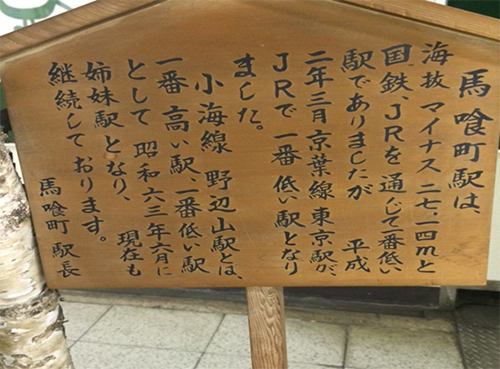 馬喰町駅は、
海抜 マイナス 二七.一四mと
国鉄、JRを 通じて一番低い
駅でありましたが 平成
二年三月京葉線東京駅が、
JRで 一番 低い駅となり
ました。
小海線 野辺山駅とは、
一番 高い駅、一番低い駅
として 昭和六三年六月に
姉妹駅となり、 現在も
継続して おります。
馬喰町 駅長